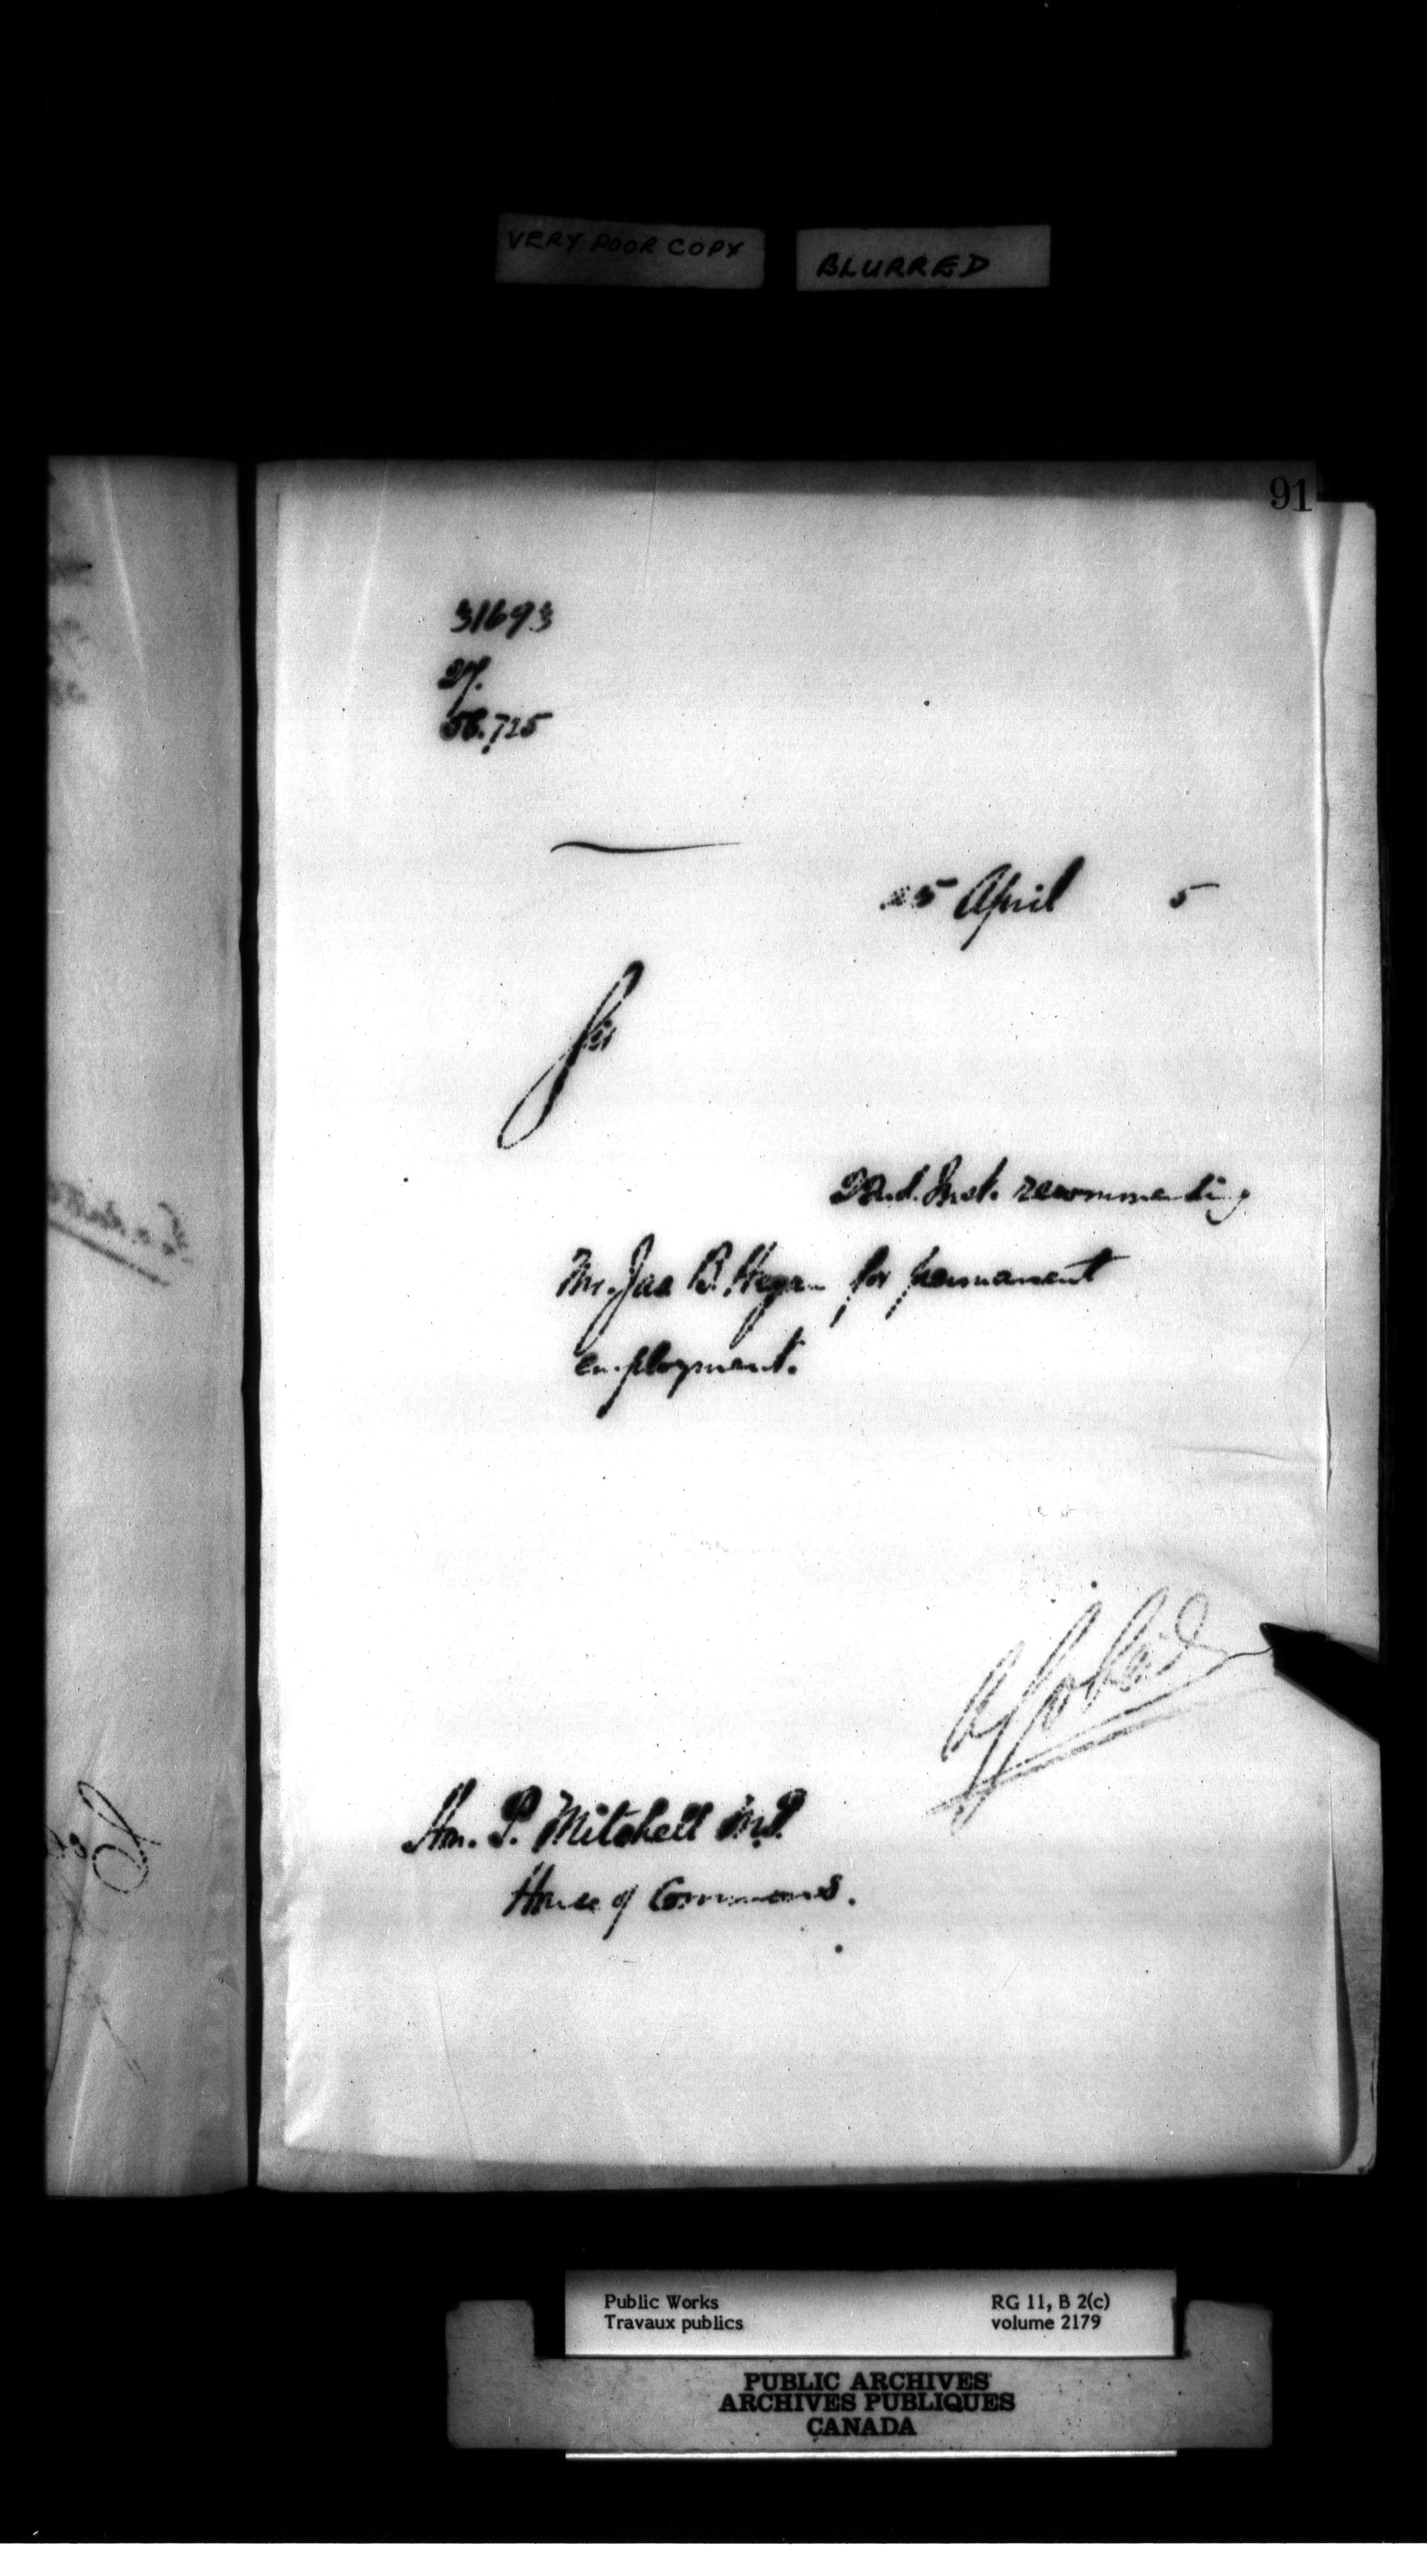 VERY POOR COPY
BLURRED
91
31693
27.
58.725
25 April 5
Sir
22nd. Inst. recommending
Mr. Jas B. Hegan for permanent
employment.
Hon. P. Mitchell M.P.
House of Commons.
Public Works
Travaux publics
RG 11, B 2(c)
volume 2179
PUBLIC ARCHIVES
ARCHIVES PUBLIQUES
CANADA